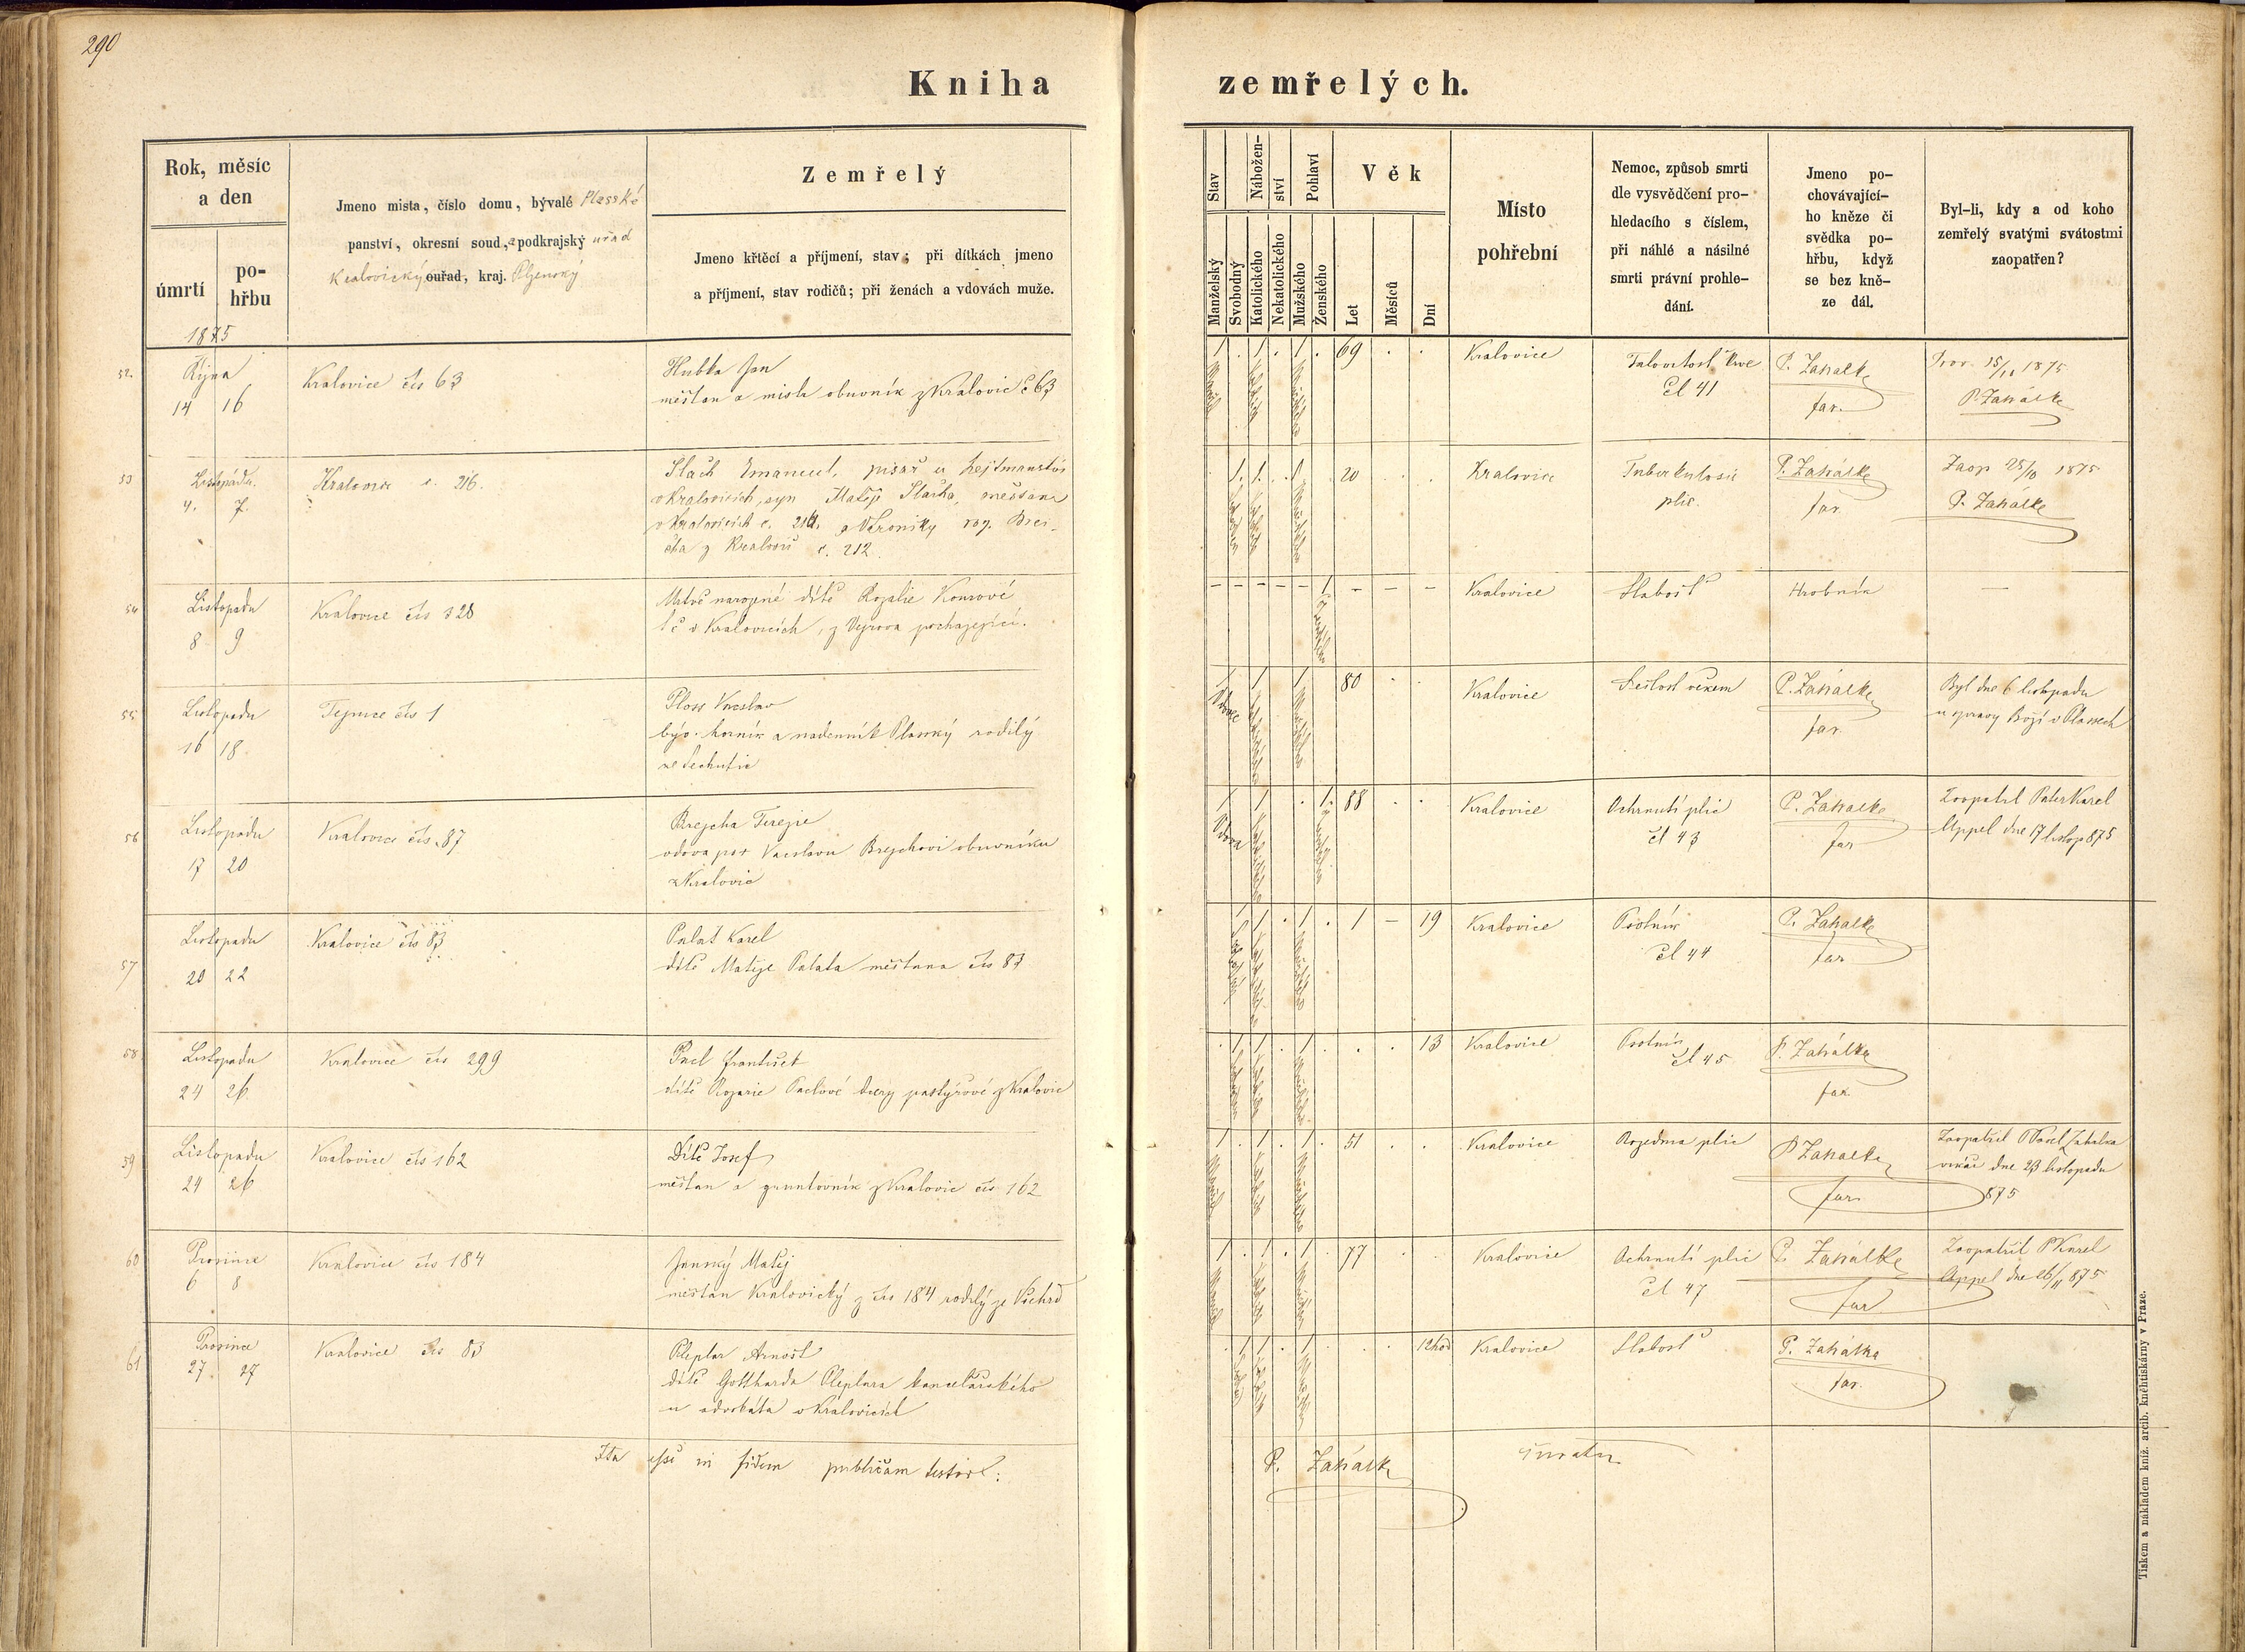 290
Kniha zemřelých.
Rok, měsíc
a den
úmrtí
po-
hřbu
1875
Jmeno mista, číslo domu, bývalé Plasské
panství, okresní soud, a podkrajský uřad
Kralovický ouřad, kraj. Plzenský
Zemřelý
Jmeno křtěcí a příjmení, stav; při dítkách jmeno
a příjmení, stav rodičů; při ženách a vdovách muže.
Stav
Manželský
Svobodný
Nábožen-
ství
Katolického
Nekatolického
Pohlaví
Mužského
Ženského
Věk
Let
Měsíců
Dní
Místo
pohřební
Nemoc, způsob smrti
dle vysvědčení pro-
hledacího s číslem,
při náhlé a násilné
smrti právní prohle-
dání.
Jmeno po-
chovávající-
ho kněze či
svědka po-
hřbu, když
se bez kně-
ze dál.
Byl-li, kdy a od koho
zemřelý svatými svátostmi
zaopatřen?
52.
Října
14 16
Kralovice čís 63
Hubka Jan
měšťan a mistr obuvník z Kralovic č 63
1 . 1 . 1 . 69 . .
Kralovice
čl 41
P. Zahálka
far.
15/10 1875
P. Zahálka
53
Listopadu.
4. 7.
Kralovice č. 216.
Šlach Emanuel, pisař u hejtmanství
v Kralovicích, syn Matěje Šlacha, měšťana
v Kralovicích č. 216. a Veroniky roz. Brej-
cha z Kralovic č. 212.
. 1. 1. . 1 . 20 . .
Kralovice
Tuberkulosis
plic.
P. Zahálka
far
Zaop 25/10 1875
P. Zahálka
54
Listopadu
8 9
Kralovice čís 328
Mrtvě narozené dítě Rozalie
t č v Kralovicích, z Výrova pocházející.
– – – – – 1 – – –
Kralovice
Slabosť
Hrobník
—
55
Listopadu
16 18.
čís 1
Ploss Vacslav
býv. horník a nadenník Plasský rodilý
ze
1 Vdovec 1 1 80 . .
Kralovice
Sešlosť věkem
P. Zahálka
far.
Byl dne 6 listopadu
u zpravy Boží v Plasech
56
Listopadu
17 20
Kralovice čís. 87
Brejcha Terezie
vdova poz Vacslavu Brejchovi obuvníku
z Kralovic
1 Vdova 1 . 1. 88 . .
Kralovice
Ochrnutí plic
čl 43
P. Zahálka
far
Zaopatřil Pater Karel
Appel dne 17 listop 875
57
Listopadu
20 22
Kralovice čís 83
Palat Karel
dítě Matěje Palata měšťana čís 83
1 1 . 1 . 1 – 19
Kralovice
Psotník
čl 44
P. Zahálka
far
58
Listopadu
24 26.
Kralovice čís 299
Pacl František
dítě Rozarie Paclové dcery pastýřové z Kralovic
. 1 1 . 1 . . . 13
Kralovice
Psotník
čl 45
P. Zahálka
far.
59
Listopadu
24 26
Kralovice čís 162
Dítě Josef
měšťan a gruntovník z Kralovic čís 162
1 . 1 . 1 . 51 . .
Kralovice
Rozedma plic
P Zahálka
far
Zaopatřil P Karel Zahalka
vikář dne 23 listopadu
875
60
Prosince
6 8
Kralovice čís 184
Janský Matěj
měšťan Kralovický z čís 184 rodilý ze Všehrd
1 . 1 . 1 . 77 . .
Kralovice
Ochrnutí plic
čl 47
P. Zahálka
far
Zaopatřil P Karel
Appel dne 26/11 875
61
Prosince
27. 27
Kralovice čís 83
Pleplar Arnošt
dítě Gottharda Pleplara kancelářského
u advokáta v Kralovicích
. 1 1 . 1 . . . 12 hod
Kralovice
Slabosť
P. Zahálka
far.
Ita esse in fidem publicam testor:
P. Zahálka
Tiskem a nákladem kníž. arcib. kněhtiskárny v Praze.